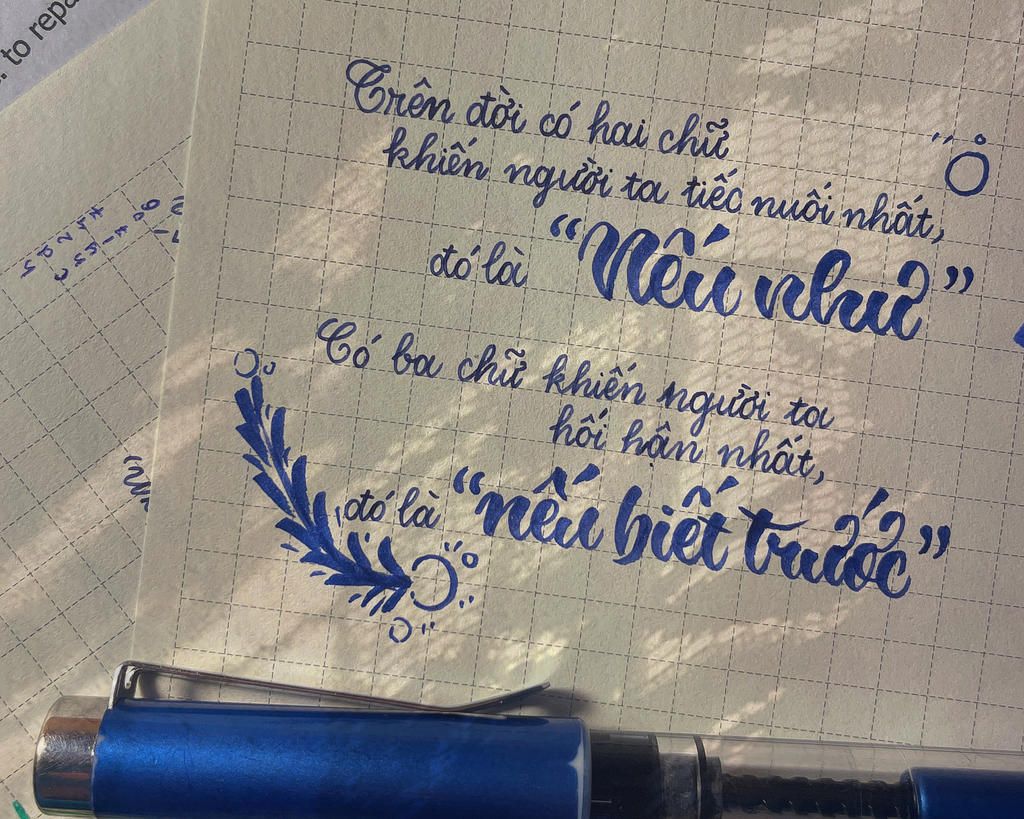 to repa
Trên đời có hai chữ
khiến người ta tiếc nuối nhất,
đó là “Nếu như”
Có ba chữ khiến người ta
hối hận nhất,
đó là “nếu biết trước”